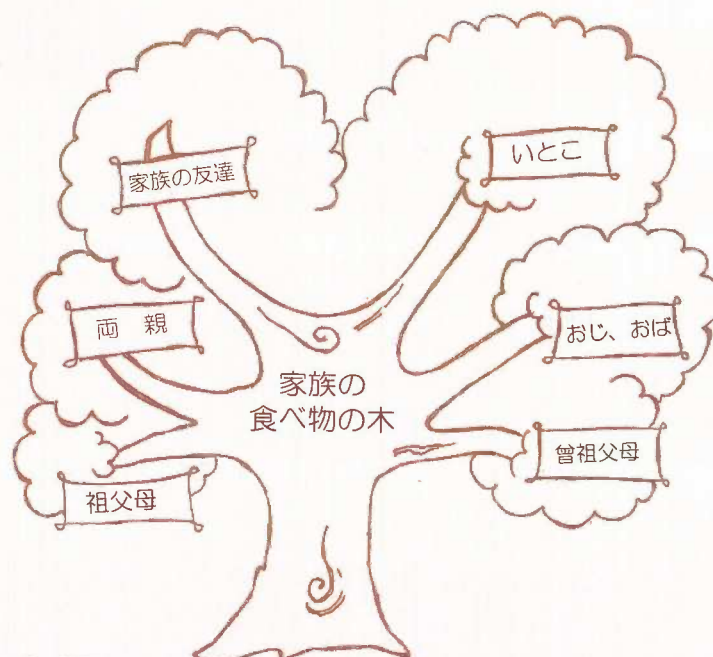 家族の友達
いとこ
両 親
おじ、おば
家族の
食べ物の木
曾祖父母
祖父母